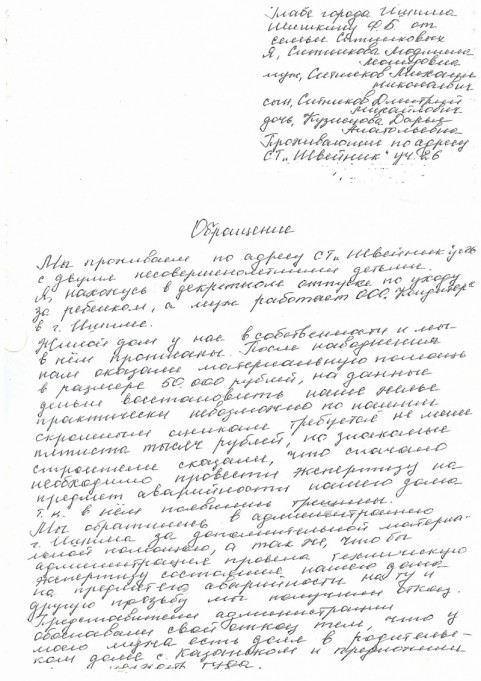 Главе города Ишима
Шишкину Ф.Б. от
семьи Ситниковых
Я, Ситникова Людмила
Леонидовна
муж, Ситников Михаил
Николаевич
сын, Ситников Дмитрий
Михайлович
дочь, Кузнецова Дарья
Анатольевна
Проживающие по адресу
СТ „Швейник" уч. 26
Обращение
Мы проживаем по адресу СТ „Швейник"
с двумя несовершеннолетними детьми.
Я, нахожусь в декретном отпуске по уходу
за ребенком, а муж работает ООО.
в г. Ишиме.
Жилой дом у нас в собственности и мы
в нём прописаны. После наводнения
нам оказали материальную помощь
в размере 50.000 рублей, на данные
деньги восстановить наше жилье
практически невозможно по нашим
скромным оценкам требуется не менее
пятиста тысяч рублей, но знакомые
строители сказали, что сначало
необходимо провести экспертизу на
предмет аварийности нашего дома
т.к. в нём появились трещины.
Мы обратились в администрацию
г. Ишима за дополнительной материа-
льной помощью, а так же, что бы
администрация провела техническую
экспертизу состояние нашего дома
на предмет его аварийности на ту и
другую прозьбу мы получили отказ.
Представители администрации
обосновали свой отказ тем, что у
моего мужа есть доля в родительс-
ком доме с. Казанском и предложили
туда.